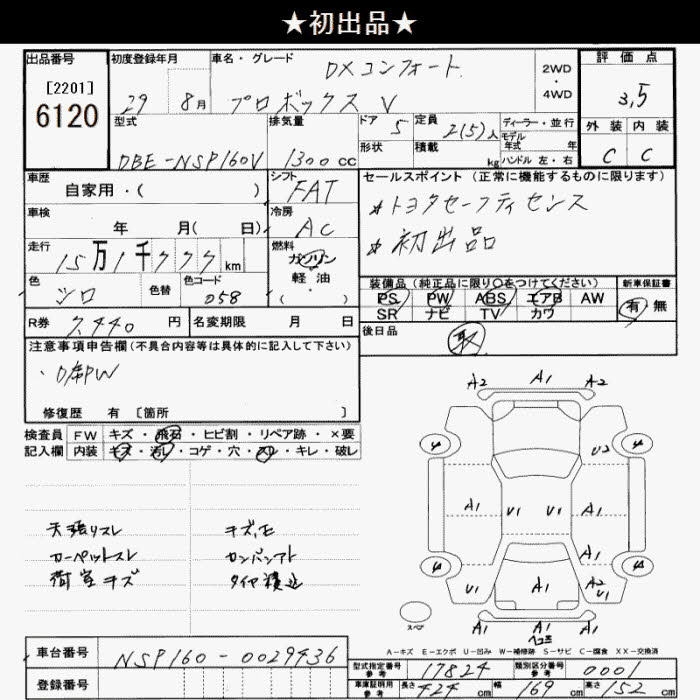 ★初出品★
出品番号 初度登録年月 車名・グレード 評価点
DXコンフォート
2WD
[2201]
6120
29 8月 プロボックス V
4WD
3,5
型式 排気量 ドア 5 定員 2(5)人 ディーラー・並行
外装 内装
モデル
年式 年
DBE-NSP160V 1300cc 形状 積載 kg ハンドル 左・右
C C
車歴 シフト セールスポイント (正常に機能するものに限ります)
自家用・( ) FAT
*トヨタセーフティセンス
車検 冷房
年 月( 日) AC
*初出品
走行 燃料
15万1千777km ガソリン
軽油
装備品 (純正品に限り○をつけてください) 新車保証書
色 色替 色コード ・( )
シロ 058
PS PW ABS エアB AW 有 無
SR ナビ TV カワ
R券 7,440円 名変期限 月 日
後日品
取
注意事項申告欄(不具合内容等は具体的に記入して下さい)
修復歴 有 [箇所 ]
検査員 FW キズ・飛石・ヒビ割・リペア跡・×要
記入欄 内装 キズ・汚レ・コゲ・穴・スレ・キレ・破レ
A2 A1 A2
U2
A1 U1 U1 A1
A1
U1 A1 A2
U1
天張りスレ キズ,モ
カーペットスレ カンバンアト
荷室キズ タイヤ積込
スペア
A1 A1 A1
ヘコミ
A-キズ E-エクボ U-凹み W-補修跡 S-サビ C-腐食 XX-交換済
車台番号 NSP160-0029436
型式指定番号 参考 17824 類別区分番号 参考 0001
登録番号
車庫証明用 参考 長さ 424cm 幅 169cm 高さ 152cm